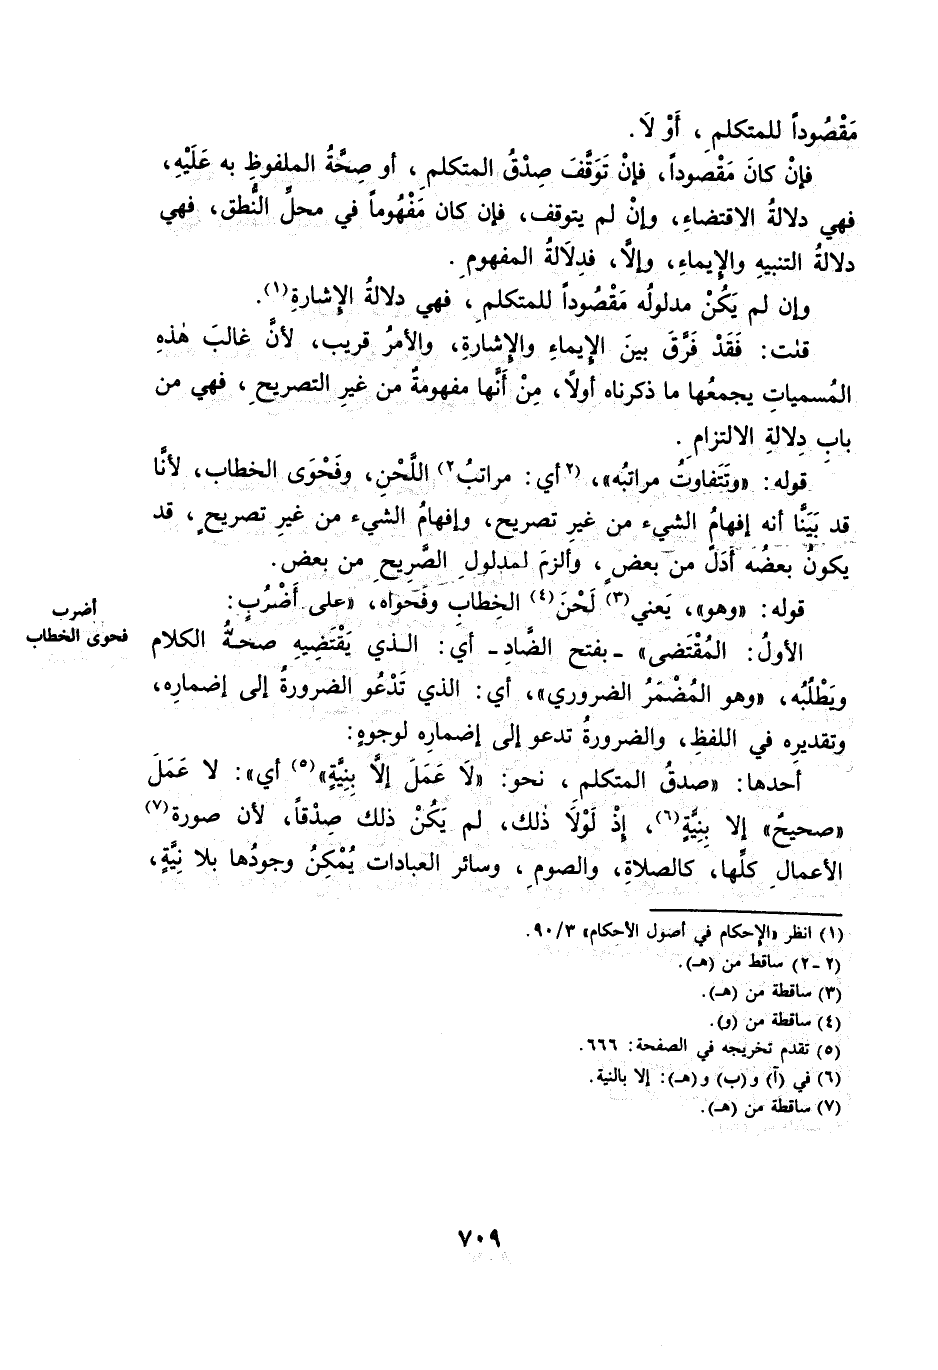 مَقْصُوداً للمتكلمِ، أَوْ لَا.
فإنْ كانَ مَقْصوداً، فإنْ تَوَقَّفَ صِدْقُ المتكلمِ، أو صِحَّةُ الملفوظِ به عَلَيْهِ،
فهي دلالةُ الاقتضاءِ، وإنْ لم يتوقف، فإن كان مَفْهُوماً في محلِّ النُّطق، فهي
دلالةُ التنبيهِ والإيماءِ، وإلَّا، فدِلَالةُ المفهومِ.
وإن لم يَكُنْ مدلولُه مَقْصُوداً للمتكلمِ، فهي دلالةُ الإشارةِ(١).
قلت: فَقَدْ فَرَّقَ بينَ الإيماءِ والإشارةِ، والأمرُ قريب، لأنَّ غالبَ هٰذهِ
المُسمياتِ يجمعُها ما ذكرناه أولًا، مِنْ أَنَّها مفهومةٌ من غيرِ التصريحِ، فهي من
بابِ دِلالةِ الالتزامِ.
قوله: «وتَتَفاوتُ مراتبُه»، (٢أي: مراتبُ٢) اللَّحْنِ، وفَحْوَى الخطاب، لأنَّا
قد بَيَّنَّا أنه إفهامُ الشيء من غيرِ تصريح، وإفهامُ الشيء من غيرِ تصريحٍ، قد
يكونُ بعضُه أَدَلَّ من بعضٍ، وألزمَ لمدلولِ الصَّريحِ من بعض.
قوله: «وهو»، يَعني(٣) لَحْنَ(٤) الخِطابِ وفَحواه، «على أَضْرُبٍ:
أضرب
فحوى الخطاب
الأولُ: المُقْتَضى» ـ بفتح الضَّادِ ـ أي: الـذي يَقْتَضِيهِ صحـةُ الكلام
ويَطْلُبُه، «وهو المُضْمَرُ الضروري»، أي: الذي تَدْعُو الضرورةُ إلى إضمارِه،
وتقديرِه في اللفظِ، والضرورةُ تدعو إلى إضمارِه لوجوهٍ:
أحدها: «صدقُ المتكلمِ، نحو: «لَا عَمَلَ إلَّا بِنِيَّةٍ»(٥) أي»: لا عَمَلَ
«صحيحٌ» إلا بِنِيَّةٍ(٦)، إذْ لَوْلَا ذٰلك، لم يَكُنْ ذلك صِدْقاً، لأن صورة(٧)
الأعمالِ كلِّها، كالصلاةِ، والصومِ، وسائر العبادات يُمْكِنُ وجودُها بلا نِيَّةٍ،
(١) انظر «الإحكام في أصول الأحكام» ٩٠/٣.
(٢ ـ ٢) ساقط من (هـ).
(٣) ساقطة من (هـ).
(٤) ساقطة من (و).
(٥) تقدم تخريجه في الصفحة: ٦٦٦.
(٦) في (آ) و(ب) و(هـ): إلا بالنية.
(٧) ساقطة من (هـ).
٧٠٩